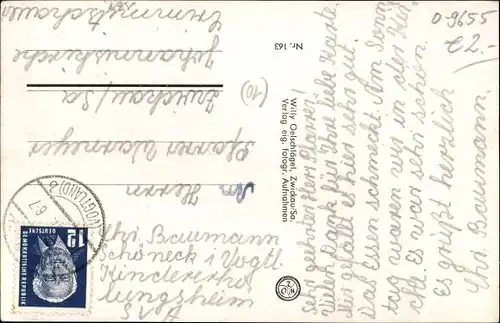 D 9655
C2.-
Sehr geehrter Herr Pfarrer!
Vielen Dank für Ihre liebe Karte.
Mir gefällt es hier sehr gut.
Das Essen schmeckt. Am Sonn
tag waren wir in der Kir
che. Es war sehr schön.
Es grüßt herzlich
Chr. Baumann.
Nr. 163
Willy Oelschlägel, Zwickau/Sa.
Verlag eig. fotogr. Aufnahmen
An
Herrn
Pfarrer
(10) Zwickau/Sa
Johanneskirche
(VOGTLAND) 2
6.7
12
DEUTSCHE
DEMOKRATISCHE REPUBLIK
Chr. Baumann
Schöneck i Vogtl
Kindererho
lungsheim